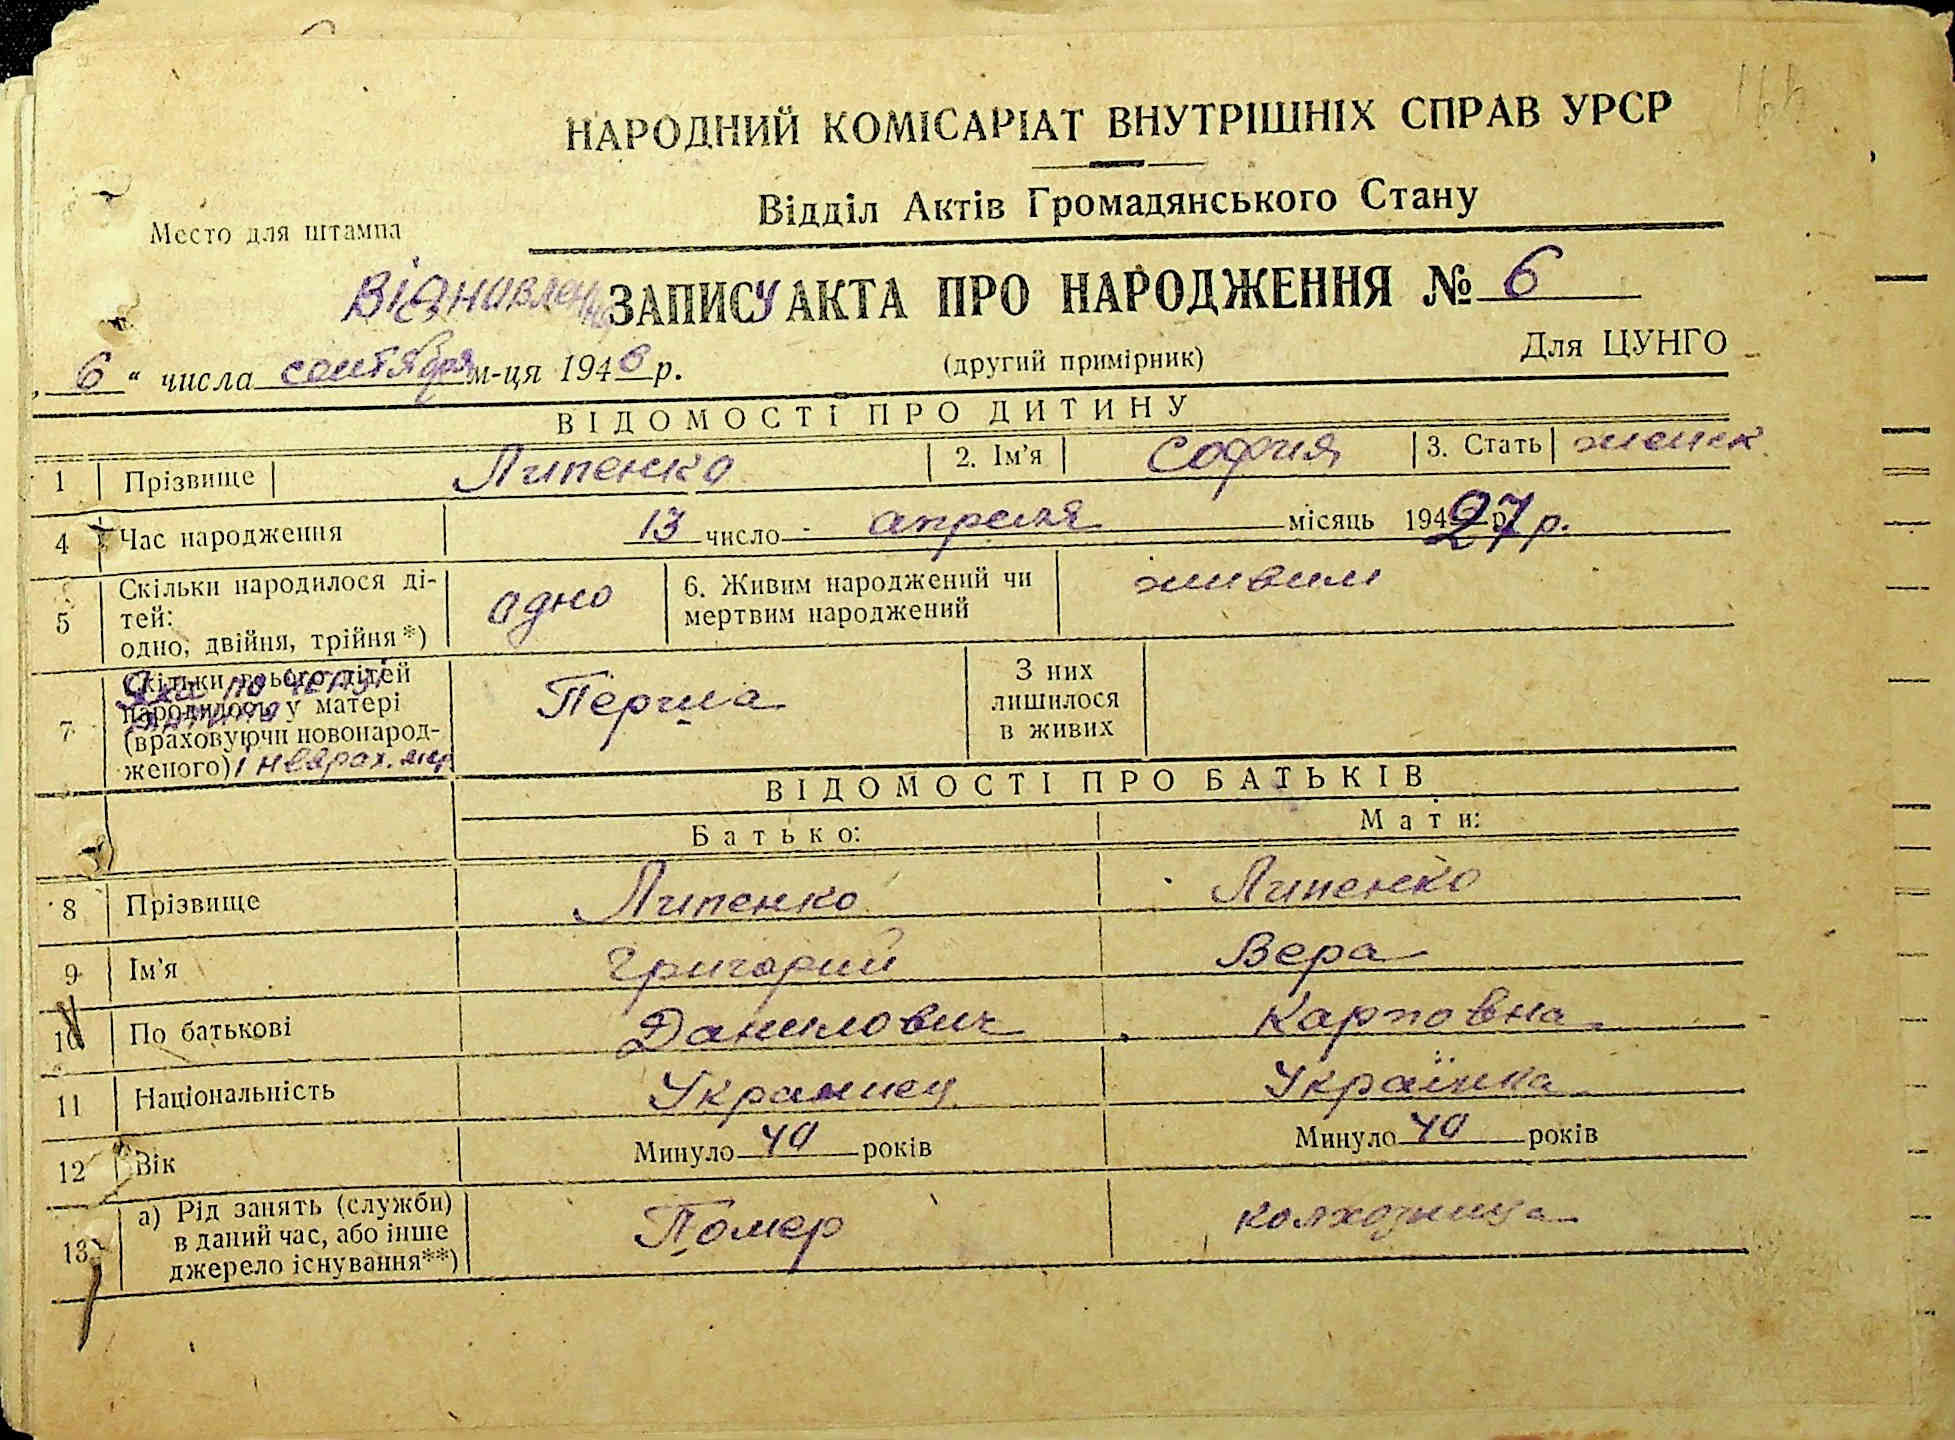 НАРОДНИЙ КОМІСАРІАТ ВНУТРІШНІХ СПРАВ УРСР
Відділ Актів Громадянського Стану
Место для штампа
Віднавлення ЗАПИСУ АКТА ПРО НАРОДЖЕННЯ № 6
„6“ числа сентября м-ця 1946 р. (другий примірник) Для ЦУНГО
ВІДОМОСТІ ПРО ДИТИНУ
1 Прізвище Липенко 2. Ім'я София 3. Стать женск.
4 Час народження 13 число апреля місяць 194 27 р.
5 Скільки народилося ді-
тей:
одно, двійня, трійня*) одно 6. Живим народжений чи
мертвим народжений живим
7 Скільки всього дітей
народилось у матері
(враховуючи новонарод-
женого) Перша З них
лишилося
в живих
ВІДОМОСТІ ПРО БАТЬКІВ
Батько: Мати:
8 Прізвище Липенко Липенко
9 Ім'я Григорий Вера
10 По батькові Данилович Карповна
11 Національність Украинец Українка
12 Вік Минуло 40 років Минуло 40 років
13 а) Рід занять (служби)
в даний час, або інше
джерело існування**) Помер колхозница